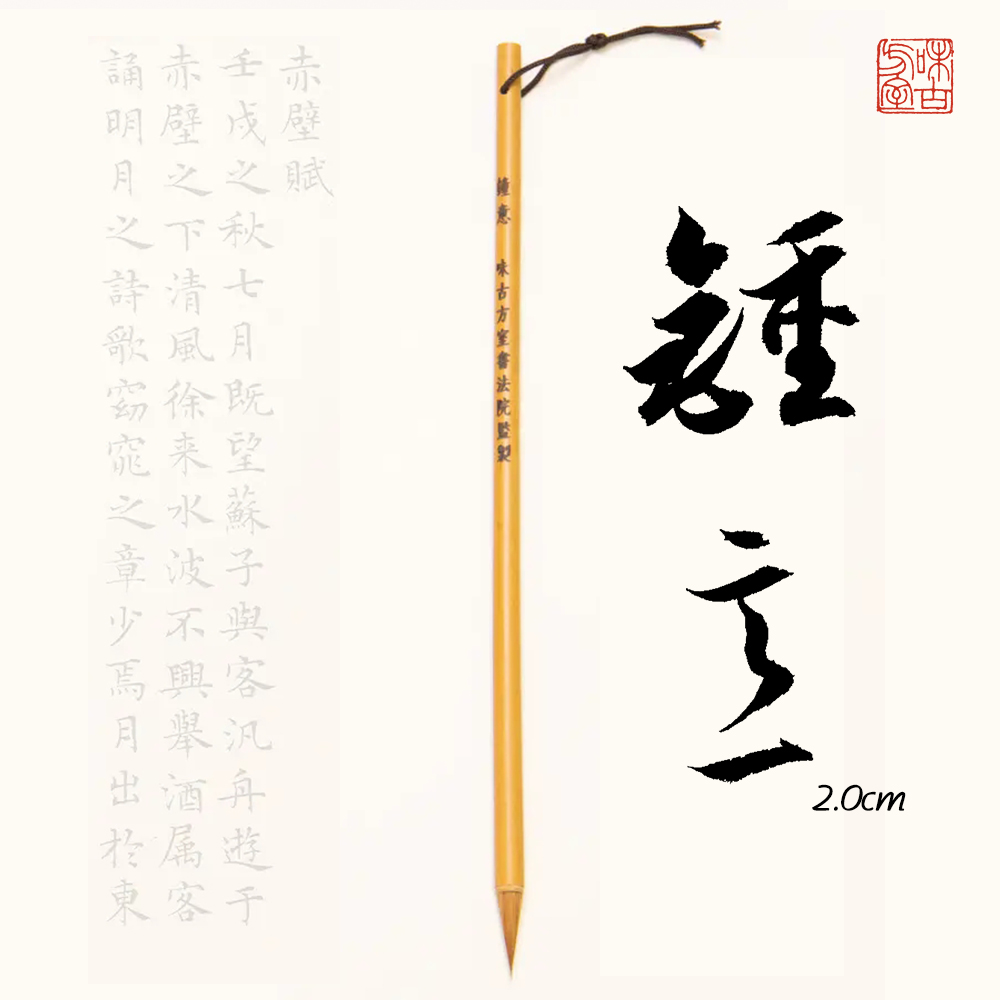 味古方室
鍾意
2.0cm
鍾意 味古方室書法院監製
赤壁賦
壬戌之秋七月既望蘇子與客汎舟遊于
赤壁之下清風徐来水波不興舉酒属客
誦明月之詩歌窈窕之章少焉月出於東